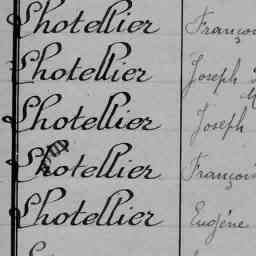 Lhotellier Françoi
Lhotellier Joseph
Lhotellier Joseph
Lhotellier Françoi
Lhotellier Eugéne